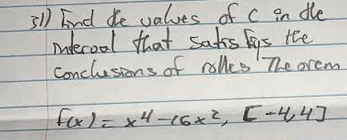 31) Find the values of c in the
interval that satisfys the
conclusions of rolles Theorem
f(x) = x⁴ -16x², [-4,4]